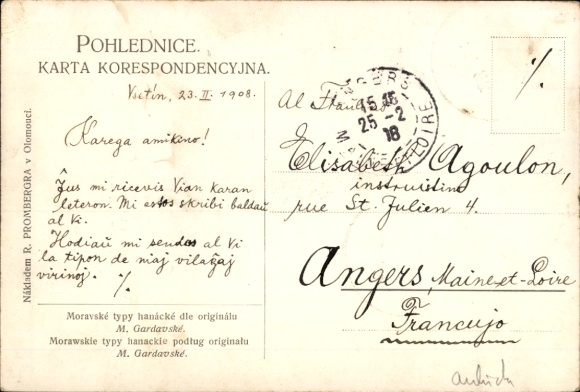 POHLEDNICE.
KARTA KORESPONDENCYJNA.
Vsetín, 23.II. 1908.
Karega amikino!
Ĵus mi ricevis Vian karan
leteron. Mi estos skribi baldaŭ
al Vi.
Hodiaŭ mi sendos al Vi
la tipon de niaj vilaĝaj
virinoj. ./.
Moravské typy hanácké dle originálu
M. Gardavské.
Morawskie typy hanackie podług originału
M. Gardavské.
Nákladem R. PROMBERGRA v Olomouci.
./.
Al Fraŭlino
Elisabeth Agoulon,
instruistino
rue St. Julien 4.
Angers, Maine-et-Loire
Francujo
ANGERS
15 45
25 -2
LOIRE